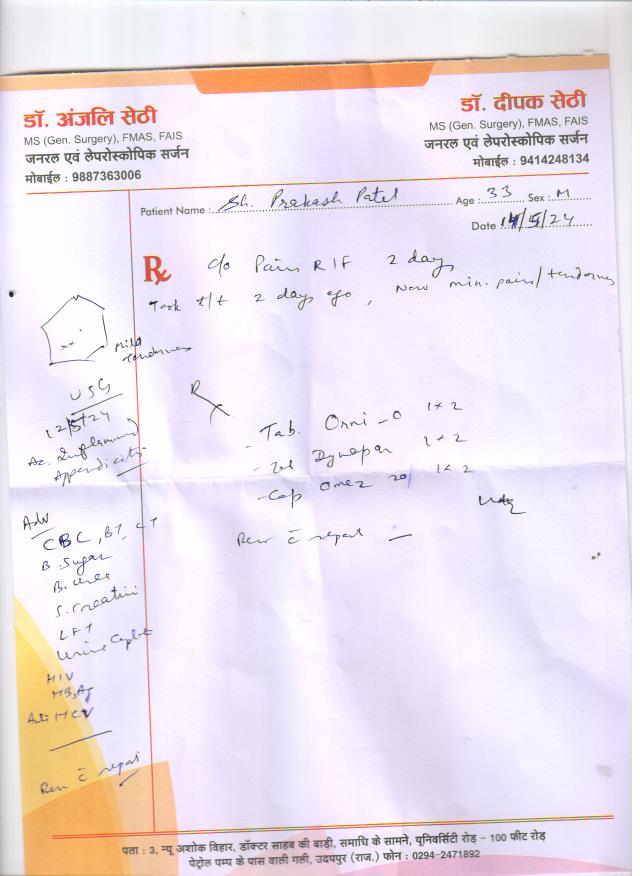 डॉ. अंजलि सेठी
MS (Gen. Surgery), FMAS, FAIS
जनरल एवं लेपरोस्कोपिक सर्जन
मोबाईल : 9887363006
डॉ. दीपक सेठी
MS (Gen. Surgery), FMAS, FAIS
जनरल एवं लेपरोस्कोपिक सर्जन
मोबाईल : 9414248134
Patient Name : Sh. Prakash Patel Age : 33 Sex : M
Date 14/5/24
Rx c/o Pain RIF 2 days
Took t/t 2 days ago, Now min. pain/tenderness
Mild
tenderness
USG
12/5/24
Ac. Inflammed
Appendicitis
R
- Tab. Orni-O 1x2
- Tab Dynapar 1x2
- Cap Omez 20 1x2
Rev c̄ report
Adv
CBC, BT, CT
B. Sugar
B. Urea
S. Creatini
LFT
Urine
HIV
HBsAg
Anti HCV
Rev c̄ report
पता : 3, न्यू अशोक विहार, डॉक्टर साहब की बाड़ी, समाधि के सामने, यूनिवर्सिटी रोड़ - 100 फीट रोड़
पेट्रोल पम्प के पास वाली गली, उदयपुर (राज.) फोन : 0294-2471892